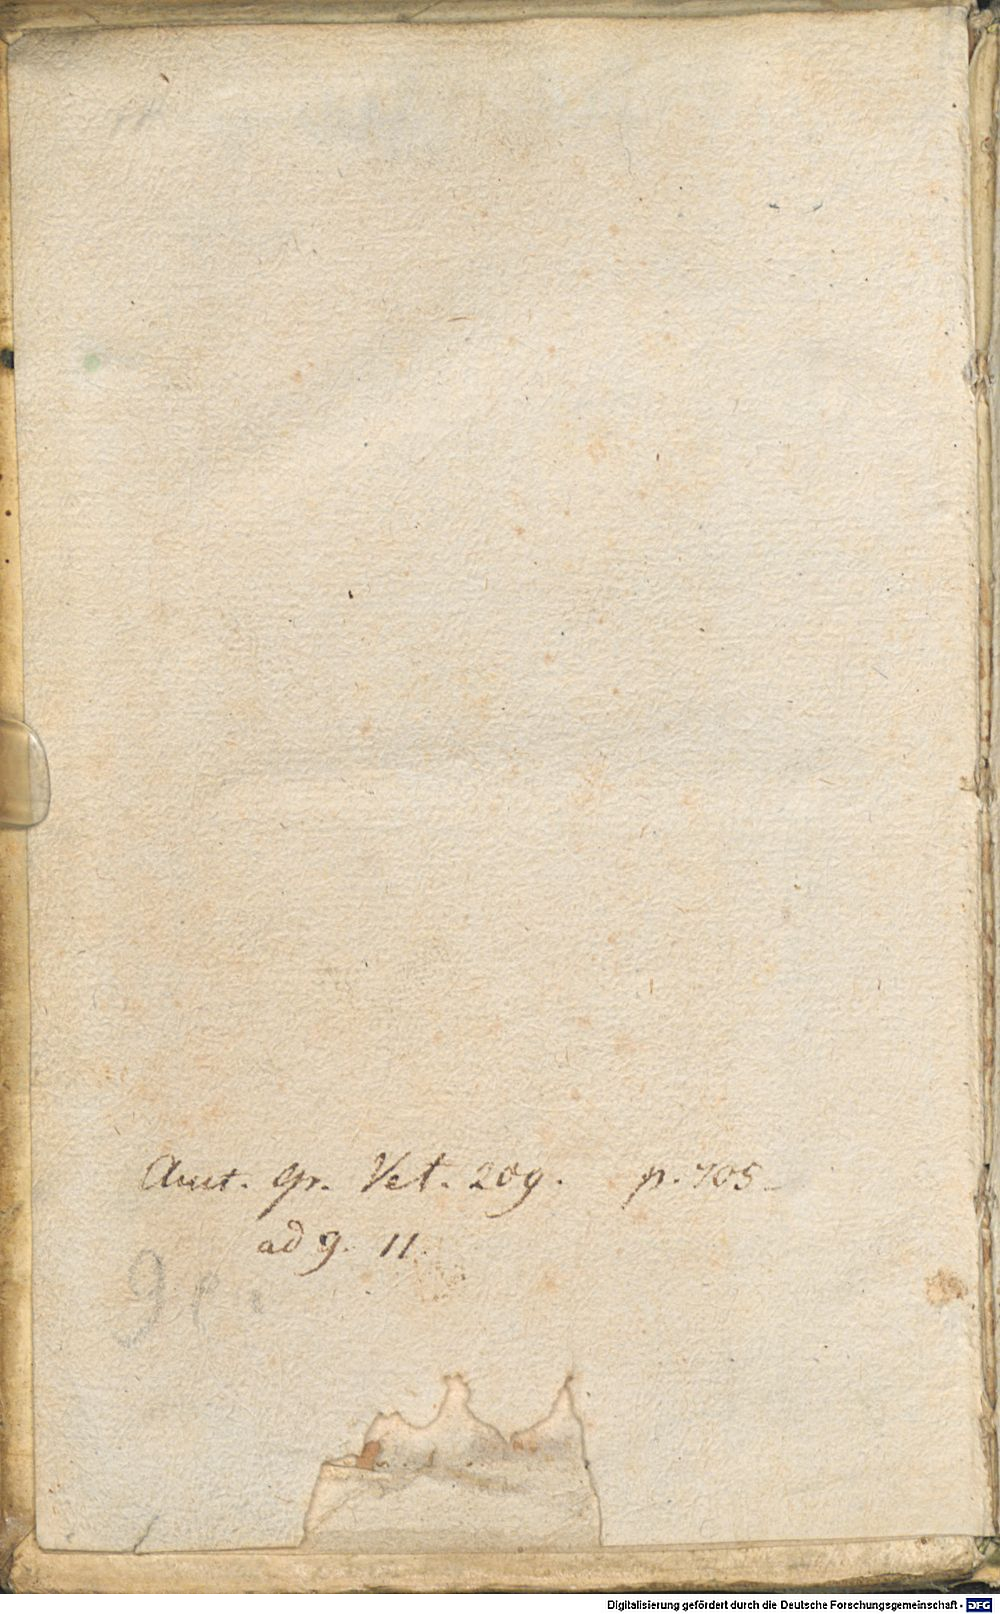 Auct. gr. Vet. 209. p. 705
ad g. 11.
Digitalisierung gefördert durch die Deutsche Forschungsgemeinschaft - DFG